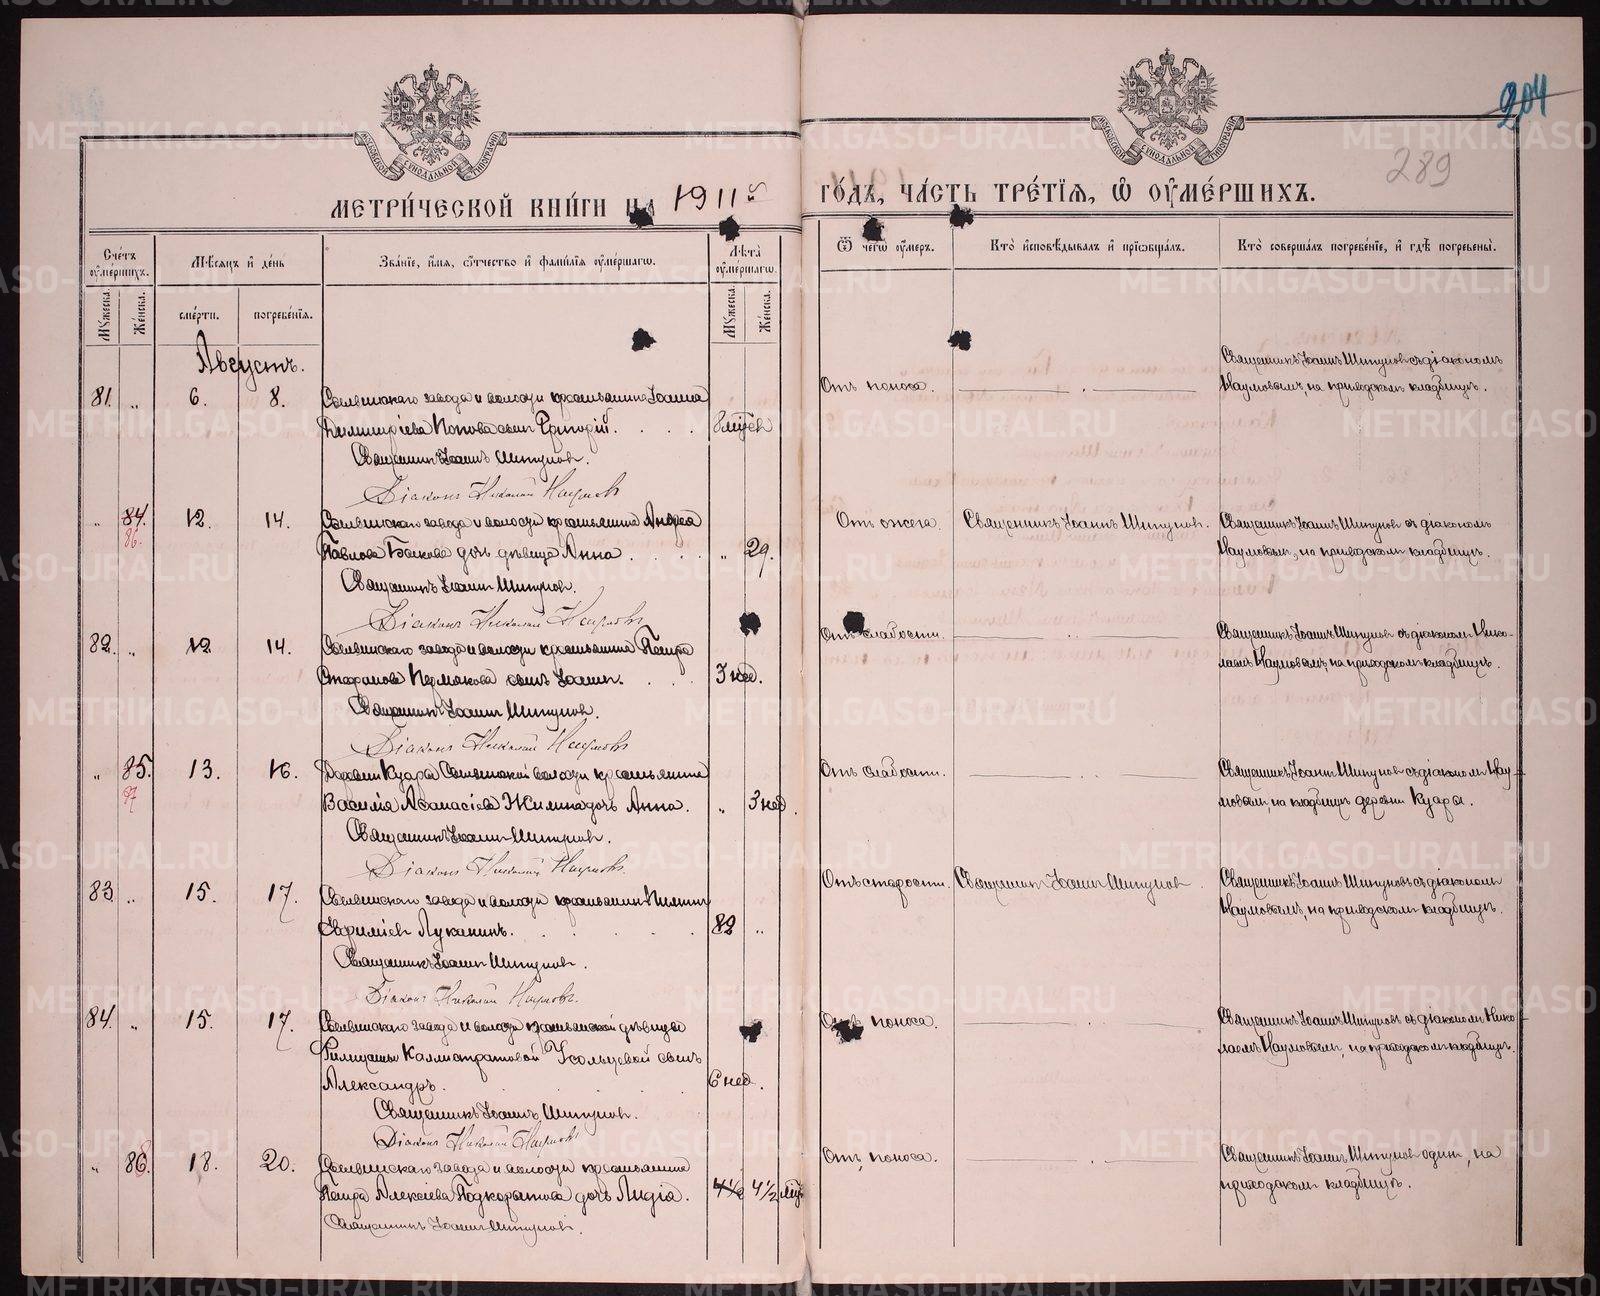 204
289
МОСКОВСКОЙ СѴНОДАЛЬНОЙ ТИПОГРАФІИ
МОСКОВСКОЙ СѴНОДАЛЬНОЙ ТИПОГРАФІИ
МЕТРИ́ЧЕСКОЙ КНИ́ГИ НА 1911й
ГО́ДЪ, ЧА́СТЬ ТРЕ́ТЇѦ, Ѡ҆ ОУ҆МЕ́РШИХЪ.
Сче́тъ оу҆ме́ршихъ.
Мꙋжеска.
Же́нска.
Мѣ́сѧцъ и҆ де́нь
сме́рти.
погребе́нїѧ.
Зва́нїе, и҆́мѧ, ѻ҆́тчество и҆ фами́лїѧ оу҆ме́ршагѡ.
Лѣта̀ оу҆ме́ршагѡ.
Мꙋжеска.
Же́нска.
Ѿ чегѡ̀ оу҆́меръ.
Кто̀ и҆сповѣ́дывалъ и҆ прїѡбща́лъ.
Кто̀ соверша́лъ погребе́нїе, и҆ гдѣ̀ погребены̀.
Августъ.
81. „ 6. 8. завода и волости крестьянина Іоанна
Димитріева Попова сынъ Григорій. 8 мѣс
Священникъ Іоаннъ Шипуновъ.
Діаконъ Николай Наумовъ
Отъ поноса.
Священникъ Іоаннъ Шипуновъ съ діакономъ
Наумовымъ, на приходскомъ кладбищѣ.
„ 84. 12. 14. завода и волости крестьянина Андрея
86.
Павлова дочь дѣвица Анна „ 29.
Священникъ Іоаннъ Шипуновъ.
Діаконъ Николай Наумовъ
Отъ ожега. Священникъ Іоаннъ Шипуновъ.
Священникъ Іоаннъ Шипуновъ съ діакономъ
Наумовымъ, на приходскомъ кладбищѣ.
82. „ 12 14. завода и волости крестьянина Петра
Стефанова Пермякова сынъ Іоаннъ. 3 нед.
Священникъ Іоаннъ Шипуновъ.
Діаконъ Николай Наумовъ
Отъ слабости.
Священникъ Іоаннъ Шипуновъ съ діакономъ Нико-
лаемъ Наумовымъ, на приходскомъ кладбищѣ.
„ 85. 13. 16. Деревни Куары волости крестьянина
87
Василія Аѳанасіева Жилина дочь Анна. „ 3 нед.
Священникъ Іоаннъ Шипуновъ.
Діаконъ Николай Наумовъ
Отъ слабости.
Священникъ Іоаннъ Шипуновъ съ діакономъ Нау-
мовымъ, на кладбищѣ деревни Куары.
83. „ 15. 17. завода и волости крестьянинъ
Евѳиміевъ Луканинъ. 82 „
Священникъ Іоаннъ Шипуновъ.
Діаконъ Николай Наумовъ.
Отъ старости. Священникъ Іоаннъ Шипуновъ
Священникъ Іоаннъ Шипуновъ съ діакономъ
Наумовымъ, на приходскомъ кладбищѣ.
84. „ 15. 17. завода и волости крестьянской дѣвицы
Каллистратовой Усольцевой сынъ
Александръ. 6 нед.
Священникъ Іоаннъ Шипуновъ.
Діаконъ Николай Наумовъ
Отъ поноса.
Священникъ Іоаннъ Шипуновъ съ діакономъ Нико-
лаемъ Наумовымъ, на приходскомъ кладбищѣ.
„ 86. 18. 20. завода и волости крестьянина
Петра Алексіева Подкорытова дочь Лидія. 4½ 4½ мѣс
Священникъ Іоаннъ Шипуновъ.
Отъ поноса.
Священникъ Іоаннъ Шипуновъ одинъ, на
приходскомъ кладбищѣ.
METRIKI.GASO-URAL.RU